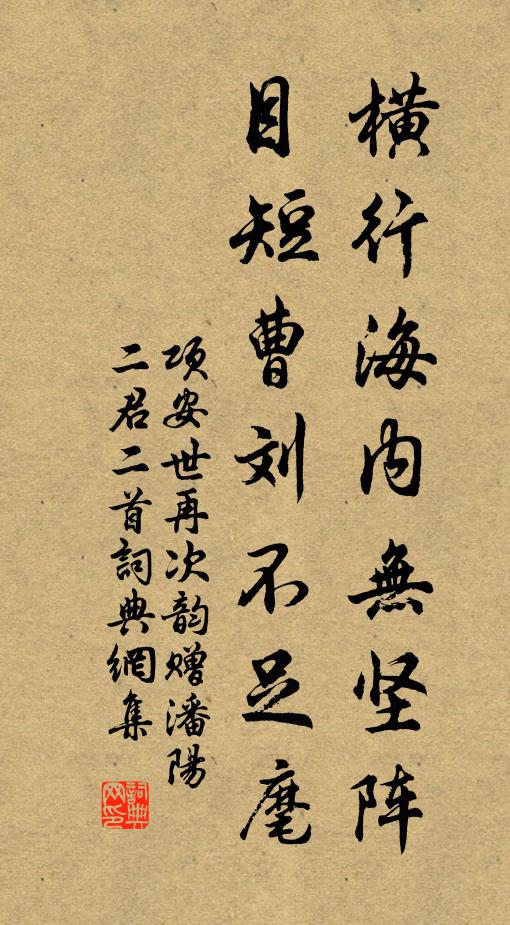 橫行海内無坚阵
目短曹刘不足麾
项安世再次韵赠潘陽
二君二首詞典網集
詞典网印